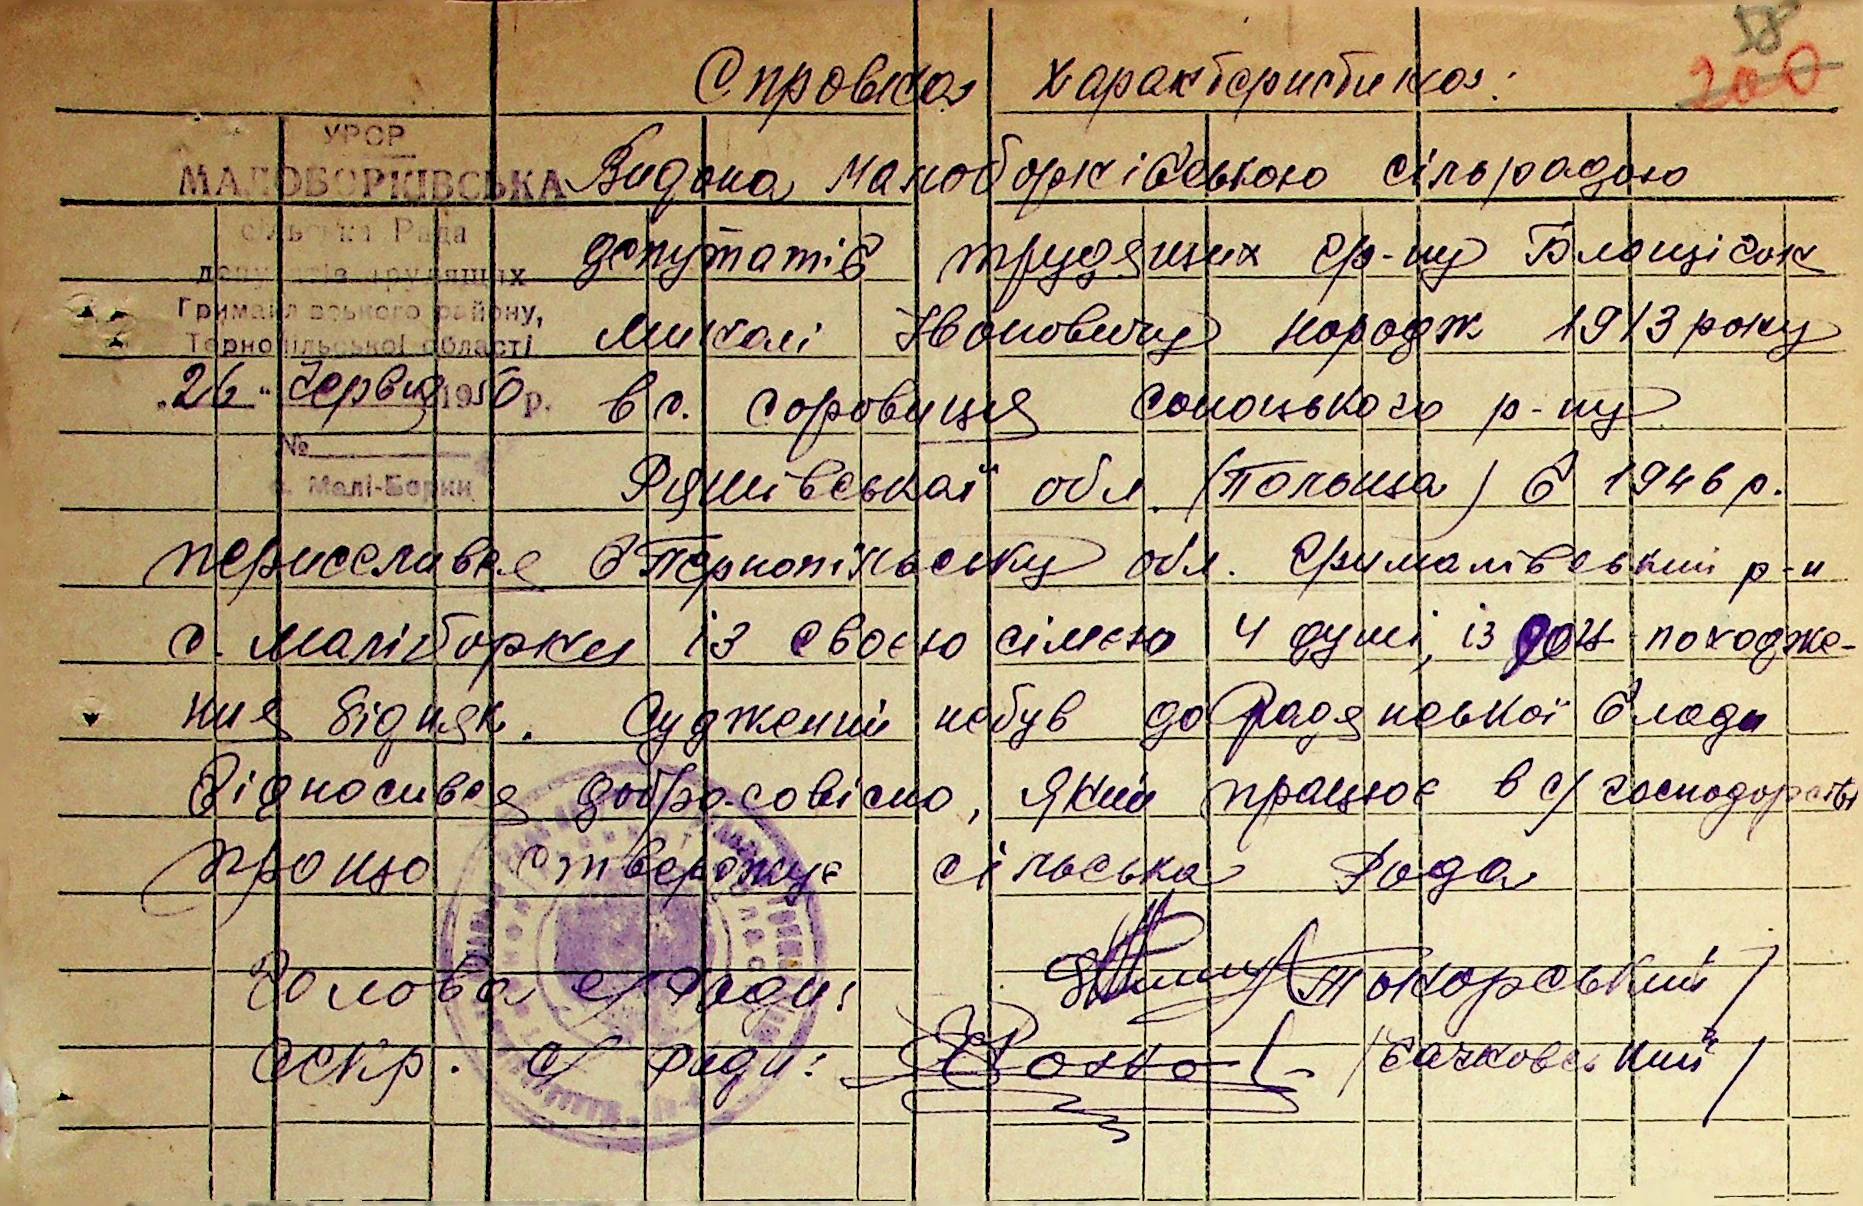 58
200
Справка характеристика:
УРСР
МАЛОБОРКІВСЬКА
сільська Рада
депутатів трудящих
Гримайлівського району,
Тернопільської області
"26" Червня 1950 р.
№
с. Малі-Борки
Видана малоборківською сільрадою
депутатів трудящих Гр-ну
Михалі Івановичу народж 1913 року
в с. Саровиця Саноцького р-ну
Ряшівської обл. (Польща) в 1946 р.
переселився в Тернопільську обл. Грималівський р-н
с. Маліборки із своєю сімєю 4 душі, із соц походже-
ння бідняк. Судженний небув до Радянської влади
відносився добросовісно, який працює в с/господарстві
про що стверджує сільська Рада
Голова с/Ради: /Токарський/
Секр. с/ Ради: /Бачковський/